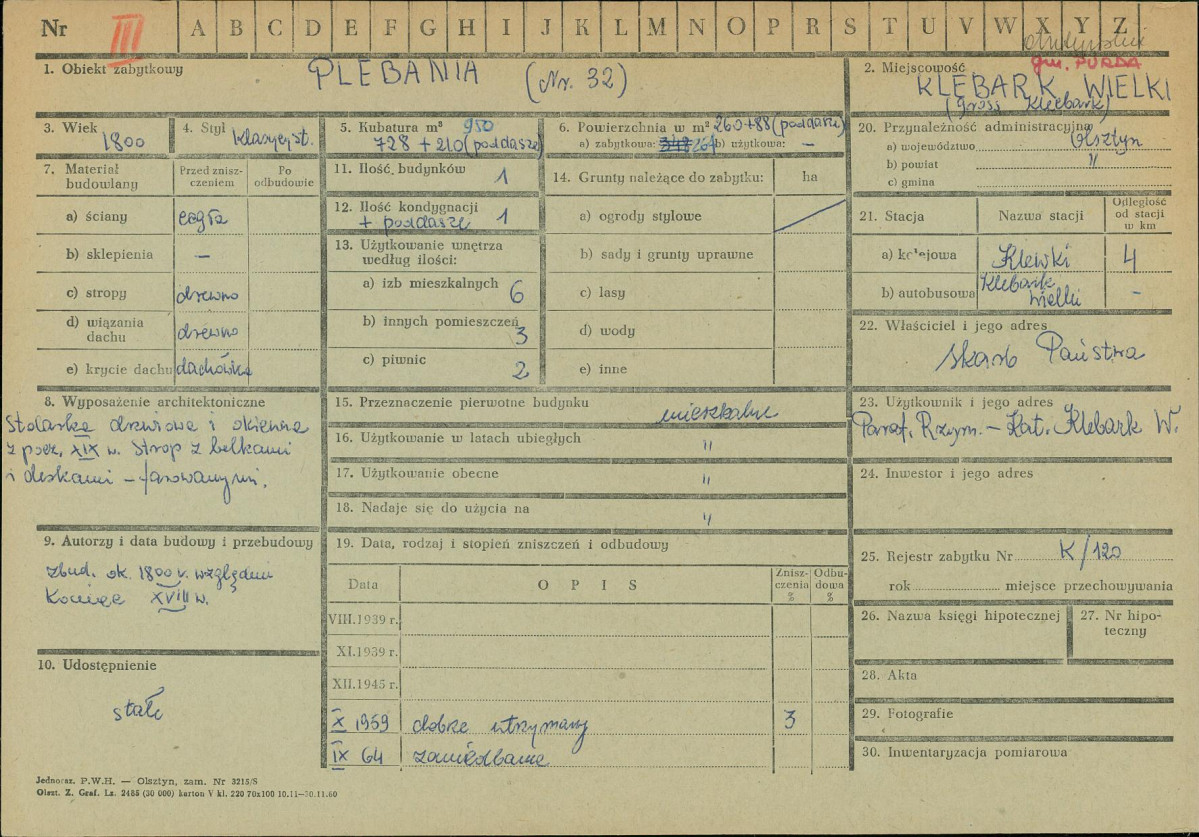 Nr III A B C D E F G H I J K L M N O P R S T U V W X Y Z
1. Obiekt zabytkowy PLEBANIA (Nr. 32)
2. Miejscowość gm. PURDA
KLEBARK WIELKI
(Gross Kleebark)
3. Wiek
1800
4. Styl klasycyst.
5. Kubatura m³ 950
728 + 210 (poddasze)
6. Powierzchnia w m² 260+88 (poddasze)
a) zabytkowa: 348 264 b) użytkowa: —
7. Materiał budowlany
Przed zniszczeniem
Po odbudowie
a) ściany cegła
b) sklepienia —
c) stropy drewno
d) wiązania dachu drewno
e) krycie dachu dachówka
8. Wyposażenie architektoniczne
Stolarka drzwiowa i okienna
z pocz. XIX w. Strop z belkami
i deskami – fazowanymi.
9. Autorzy i data budowy i przebudowy
zbud. ok. 1800 r. względni
koniec XVIII w.
10. Udostępnienie
stałe
11. Ilość budynków 1
12. Ilość kondygnacji 1
+ poddasze
13. Użytkowanie wnętrza
według ilości:
a) izb mieszkalnych 6
b) innych pomieszczeń 3
c) piwnic 2
14. Grunty należące do zabytku: ha
a) ogrody stylowe
b) sady i grunty uprawne
c) lasy
d) wody
e) inne
15. Przeznaczenie pierwotne budynku mieszkalne
16. Użytkowanie w latach ubiegłych "
17. Użytkowanie obecne "
18. Nadaje się do użycia na "
19. Data, rodzaj i stopień zniszczeń i odbudowy
Data
OPIS
Zniszczenia %
Odbudowa %
VIII.1939 r.
XI.1939 r.
XII.1945 r.
X 1959 dobrze utrzymany 3
IX 64 zaniedbane
20. Przynależność administracyjna
a) województwo Olsztyn
b) powiat "
c) gmina
21. Stacja
Nazwa stacji
Odległość od stacji w km
a) kolejowa Klewki 4
b) autobusowa Klebark Wielki –
22. Właściciel i jego adres
Skarb Państwa
23. Użytkownik i jego adres
Paraf. Rzym. – Kat. Klebark W.
24. Inwestor i jego adres
25. Rejestr zabytku Nr K/120
rok miejsce przechowywania
26. Nazwa księgi hipotecznej
27. Nr hipoteczny
28. Akta
29. Fotografie
30. Inwentaryzacja pomiarowa
Jednoraz. P.W.H. — Olsztyn, zam. Nr 3215/S
Olszt. Z. Graf. Lz. 2485 (30 000) karton V kl. 220 70x100 10.11—30.11.60